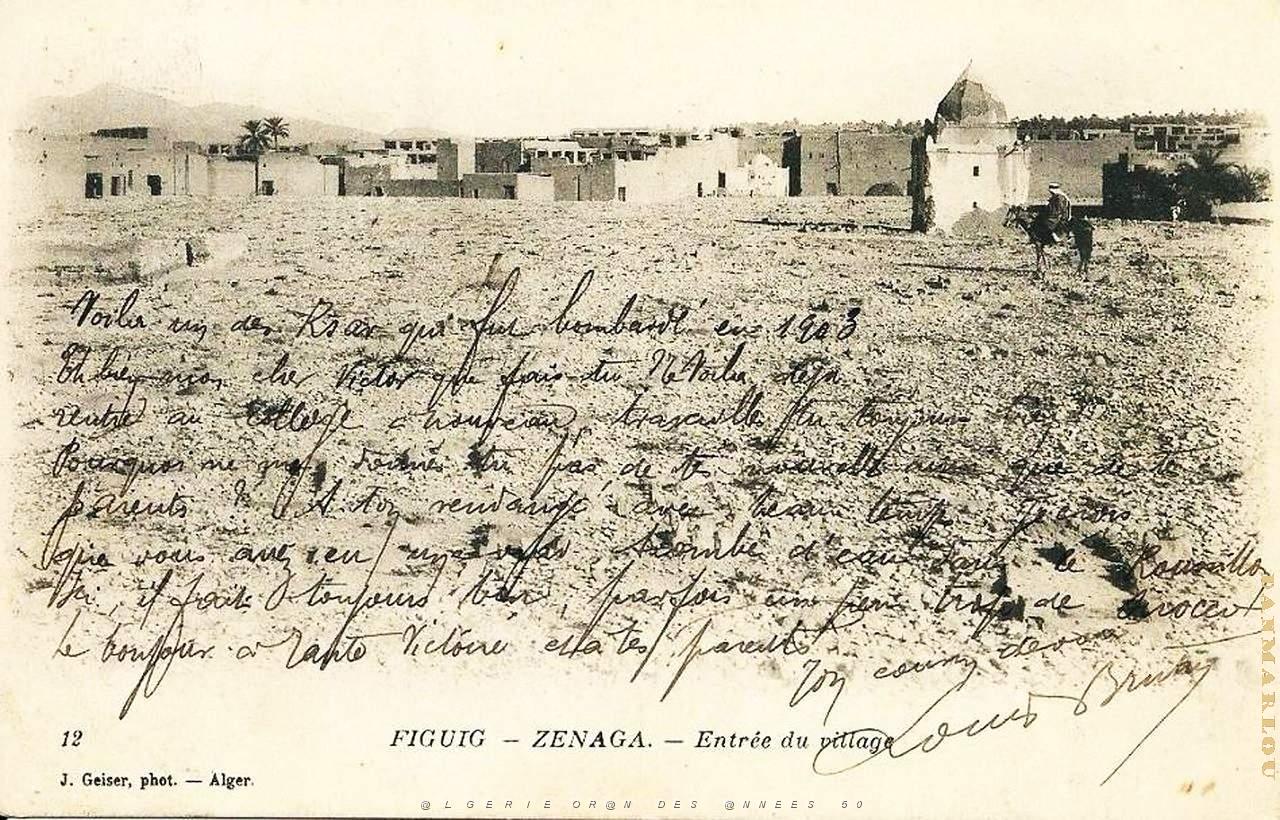 Voila un des Ksar qui fut bombardé en 1903
Eh bien mon cher Victor que fais-tu Te Voila deja
rentré au college à nouveau, travaille tu toujours
Pourquoi ne me donnes tu pas de tes nouvelle ainsi que de tes
parents ? A ton vendangé avec beau temp Je crois
que vous avez eu une tombe d'eau dans le Roussillon
Ici, il fait toujours bon, parfois un peu trop de sirocco
Le bonjour à Tante Victoire et à tes parents
Ton cousin devoué
Louis
12
FIGUIG – ZENAGA. – Entrée du village
J. Geiser, phot. — Alger.
PANMARLOU
@LGERIE OR@N DES @NNEES 50